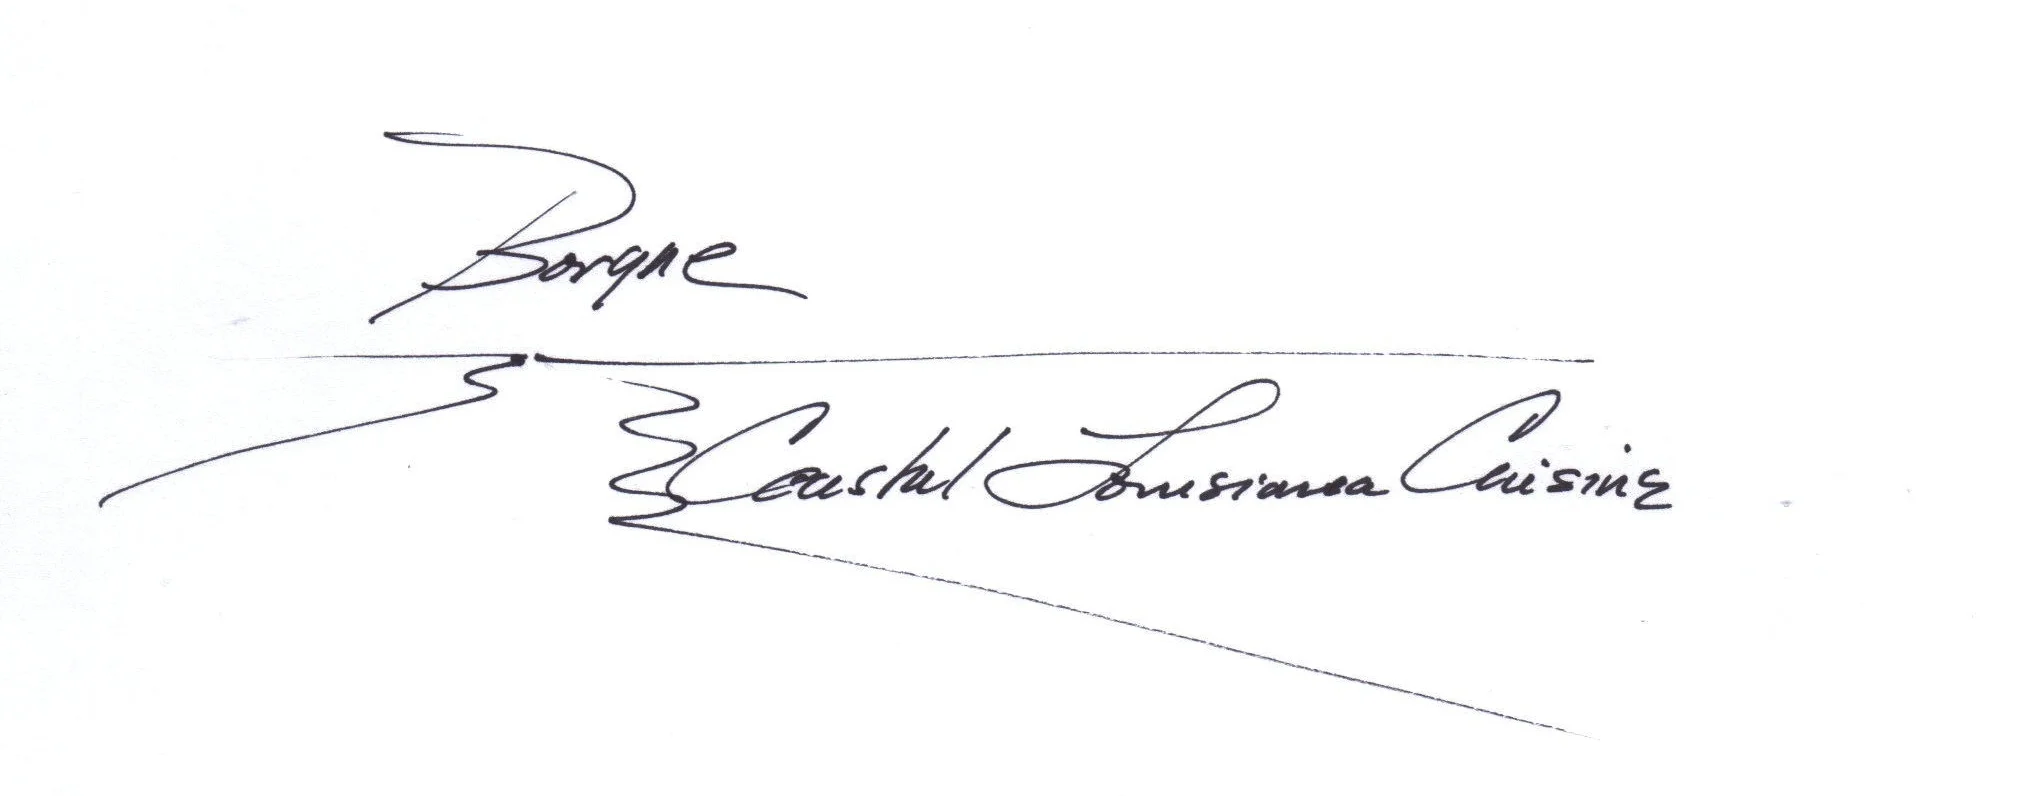 Borgne
Coastal Louisiana Cuisine